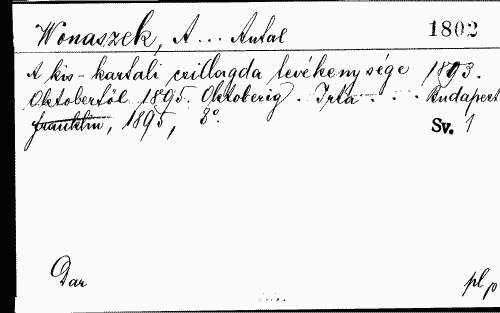 Wonaszek, A... Antal 1802
A kis-kartali csillagda tevékenysége 1893.
Oktobertől 1895. Oktoberig. Irta . . . Budapest
franklin, 1895, 8°.
Sv. 1
Dar